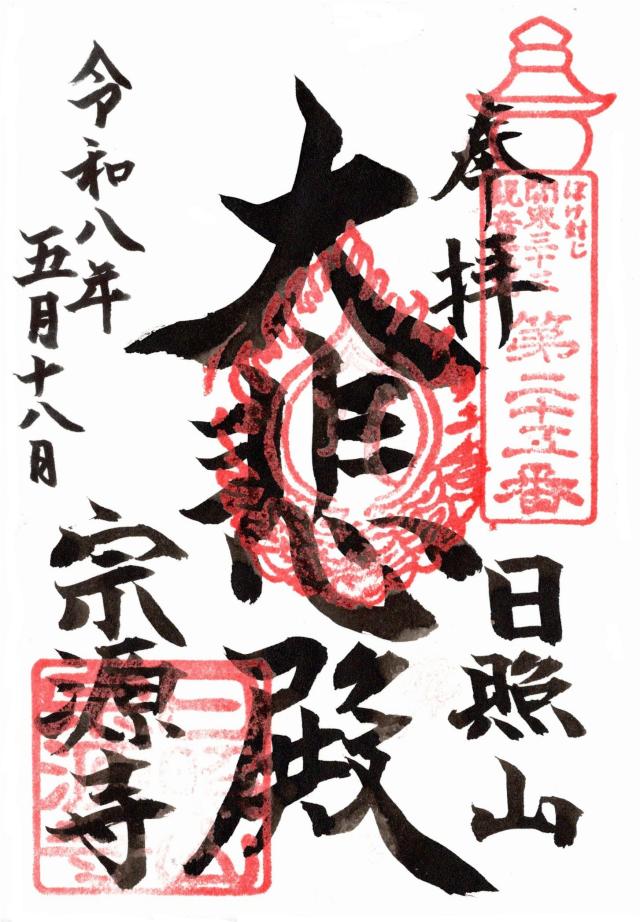 奉拝
ぼけ封じ
関東三十三
観音
第二十五番
日照山
大悲殿
令和八年
五月十八日
宗源寺